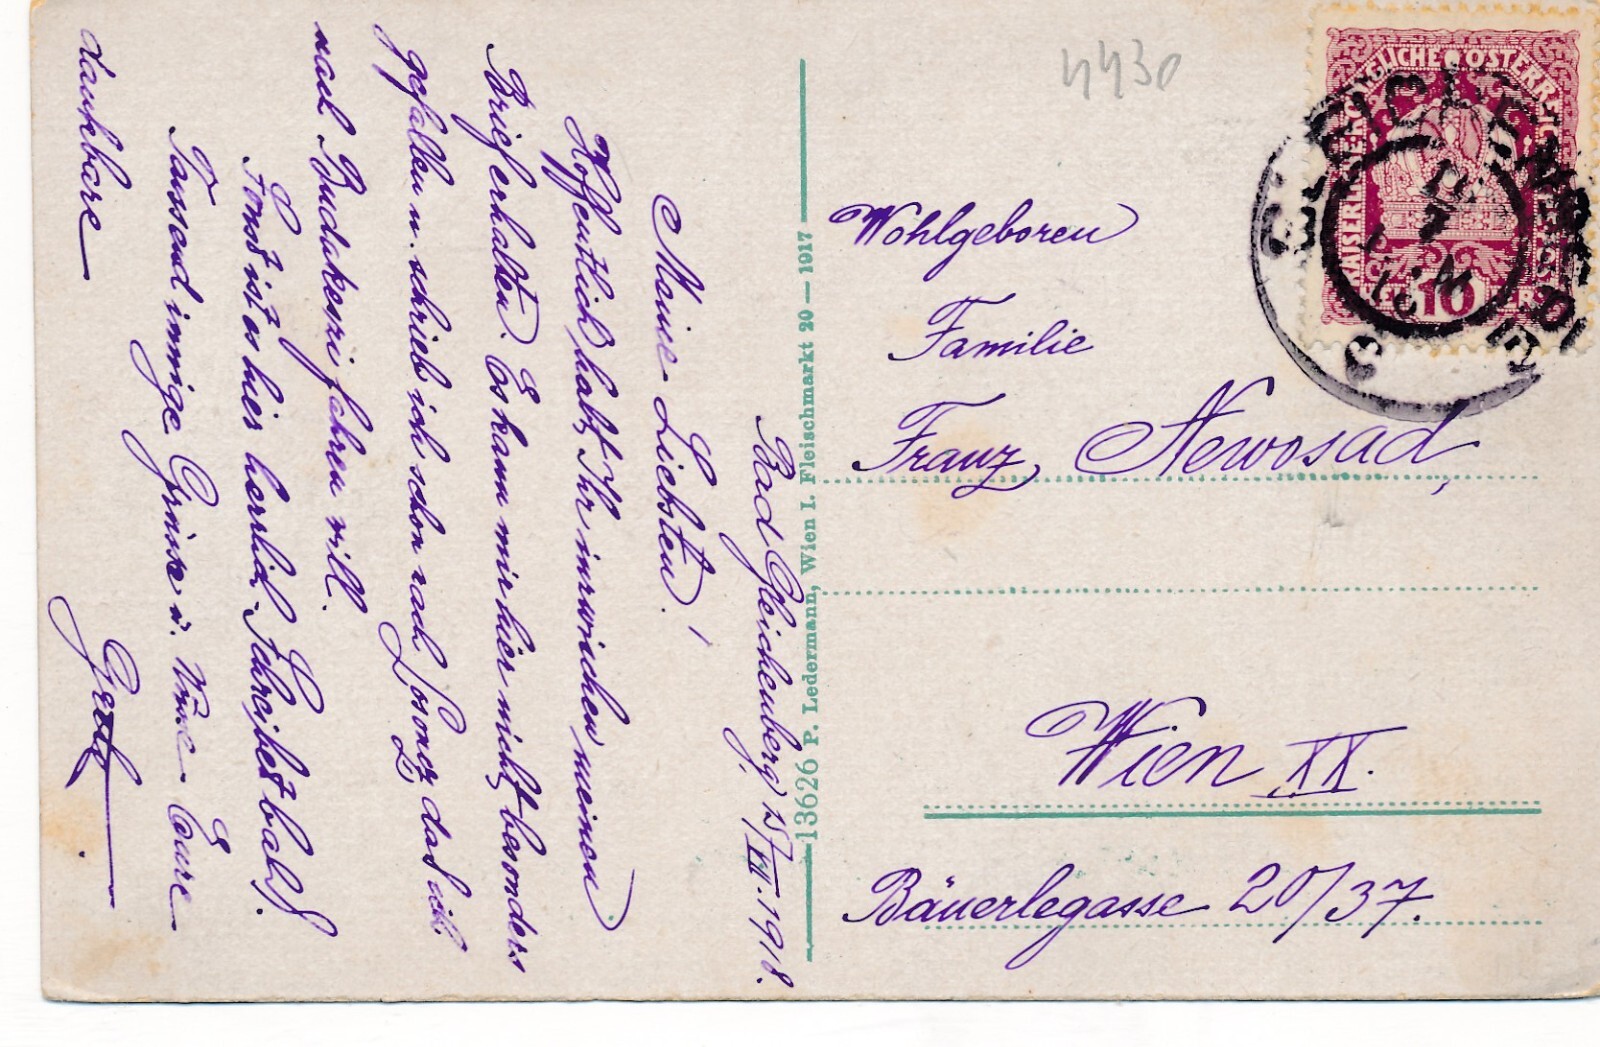 Bad Gleichenberg, 15/VII. 1918.
Meine Liebsten!
Hoffentlich habt Ihr inzwischen meinen
Brief erhalten. Es kann mir hier nicht besonders
gefallen u. schrieb ich schon nach Losoncz, daß ich
nach Budakeszi fahren will.
Sonst ist es hier herrlich. Schreibet bald!
Tausend innige Grüsse v. Eure
dankbare
13626 P. Ledermann, Wien I. Fleischmarkt 20 — 1917
4430
KAISERLICHE KÖNIGLICHE ÖSTERREICH
10
Wohlgeboren
Familie
Franz Newosad,
Wien XX.
Bäuerlegasse 20/37.